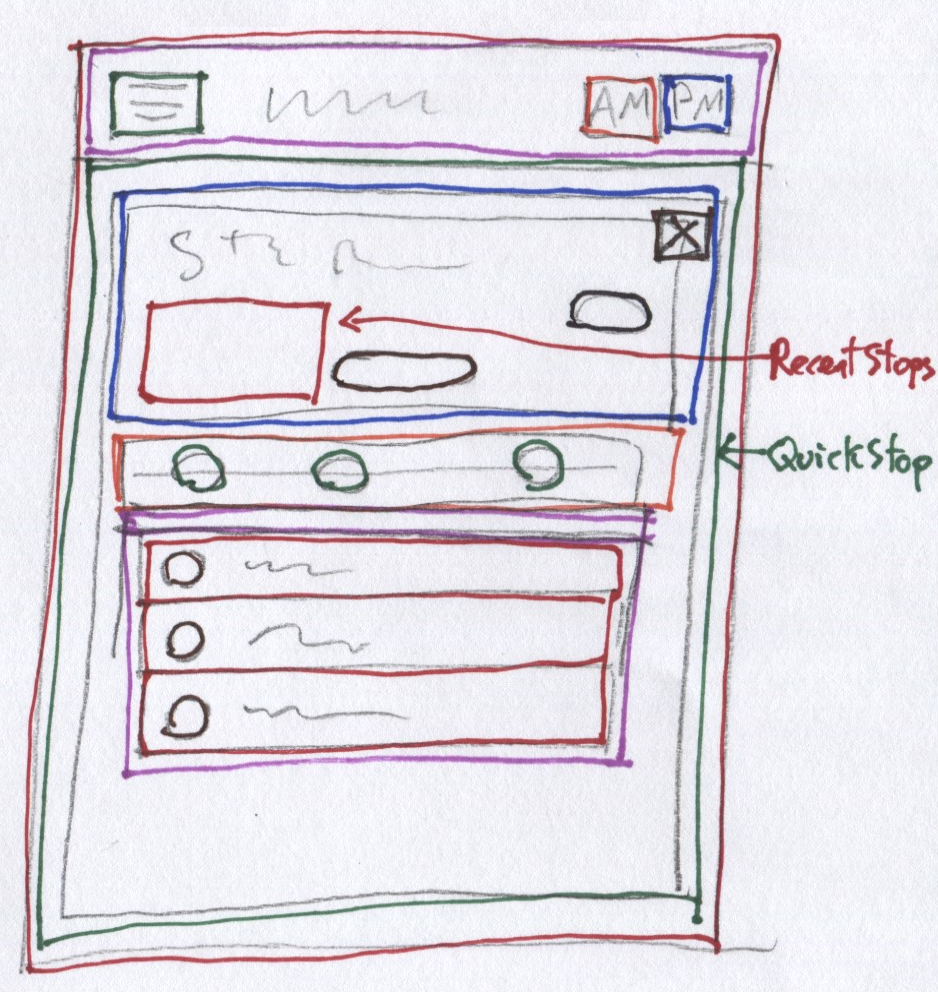 AM PM
Recent Stops
QuickStop